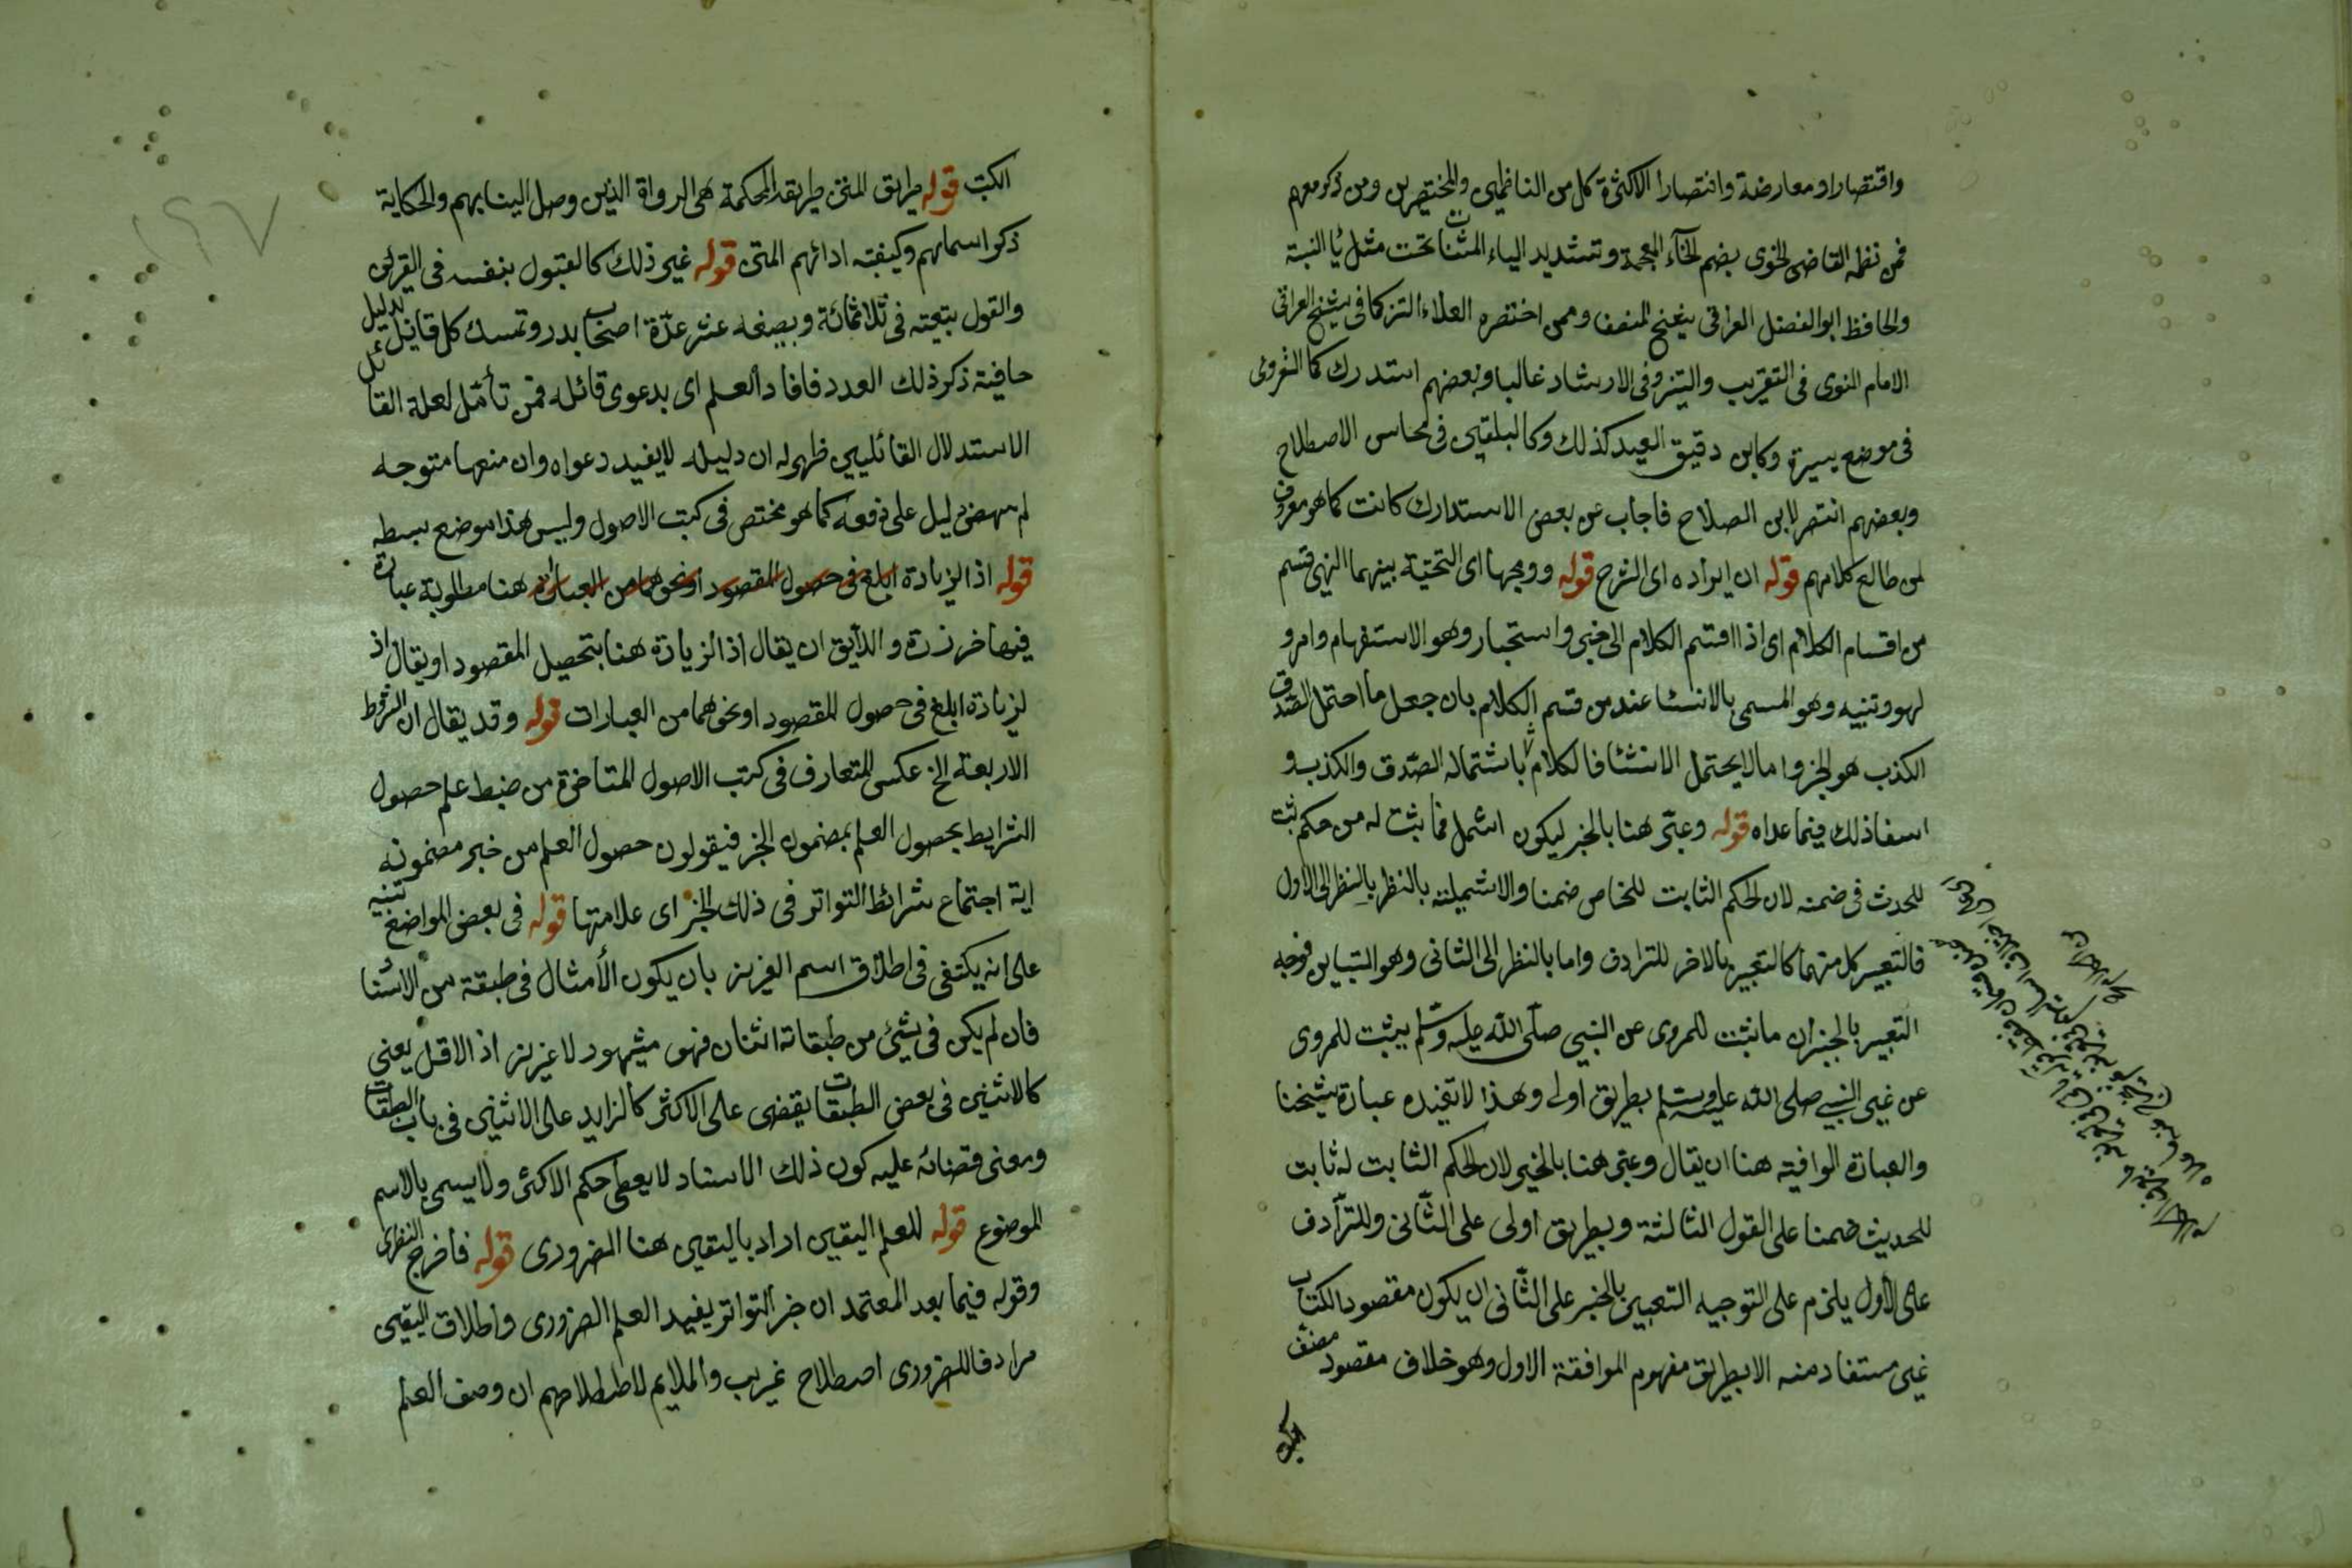 واقتصارا ومعارضة وانتصارا الاكثرة كل من الناظمين والمختصرين ومن ذكر معهم
فمن نظمه القاضى الخوى بضم الخآء المعجمة وتشديد الياء المثناة تحت مثل يا النسبة
والحافظ ابو الفضل العراقى شيخ المصنف وممن اختصره العلاء التركمانى شيخ العراقى
الامام النووى فى التقريب والتيسر وفى الارشاد غالبا وبعضهم استدرك كا
فى موضع يسيرة وكابن دقيق العيد كذلك وكالبلقينى فى محاسن الاصطلاح
وبعضهم انتصر لابن الصلاح فاجاب عن بعض الاستدارك كانت كما هو معروف
لمن طالع كلامهم قوله ان ايراده اى الشرح قوله ووجهها اى التحتية بينهما انتهى قسم
من اقسام الكلام اى اذا اقسم الكلام الى خبر واستخبار وهو الاستفهام وامر و
نهو وتنبيه وهو المسمى بالانشا عند من قسم الكلام بان جعل ما احتمل الصدق
الكذب هو الخبر وما لا يحتمل الانشئا فالكلام باشتماله الصدق والكذب و
اسفا ذلك فيما عداه قوله وعبر هنا بالخبر ليكون اشمل فما ثبت له من حكم ثبت
للحدث فى ضمنه لان الحكم الثابت للخاص ضمنا والاشملية بالنظر بالنظر الى الاول
فالتعبير كل منهما كالتعبير بالاخر للترادف واما بالنظر الى الثانى وهو التباين فوجه
التعبير بالخبر ان ما نثبت للمروى عن النبي صلى الله عليه وسلم يثبت للمروى
عن غير النبي صلى الله عليه وسلم بطريق اولى وهذا لا تفيده عبارة شيخنا
والعبارة الوافية هنا ان يقال وعبر هنا بالخبر لان الحكم الثابت له ثابت
للحديث ضمنا على القول الثالثة وبطريق اولى على الثانى وللترادف
على الاول يلزم على التوجيه التعبير بالخبر على الثانى ان يكون مقصود الكتاب
غير مستفاد منه الا بطريق مفهوم الموافقة الاول وهو خلاف مقصود مصنف
الكتب
الكتب قوله طريق المتن طريقه المحكمة هى الرواة الذين وصل الينا بهم والحكاية
ذكر اسمائهم وكيفية ادائهم المتن قوله غير ذلك كالقبول بنفسه فى القراين
والقول بتبعته فى ثلاثمائة وبضعه عشر عدّة اصحاب بدر وتمسك كل قايل بدليل
حافية ذكر ذلك العدد فافاد العلم اى بدعوى قائله فمن تأمل لعله القائل
الاستدلال القائليين ظهر له ان دليله لا يفيد دعواه وان منعها متوجه
لم ينهض دليل على دفعه كما هو مختص فى كتب الاصول وليس هذا موضع بسطه
قوله اذ الزيادة ابلغ فى حصول المقصود او نحوهما من العبارة هنا مطلوبة عبارة
فيها خرزدة والآيق ان يقال اذ الزيادة هنا بتحصيل المقصود او يقال اذ
لزيادة ابلغ فى حصول المقصود او نحوهما من العبارات قوله وقد يقال ان الشروط
الاربعة الخ عكس المتعارف فى كتب الاصول المتاخرة من ضبط علم حصول
الشرايط بحصول العلم بمضمون الخبر فيقولون حصول العلم من خبر مضمونه
اية اجتماع شرائط التواتر فى ذلك الخبر اى علامتها قوله فى بعض المواضع تنبيه
على انه يكتفى فى اطلاق اسم العزيز بان يكون الأمثال فى طبقة من الاسنا
فان لم يكن فى شيئ من طبقاته اثنان فهو مشهود لا عزيز اذ الاقل يعنى
كالاثنين فى بعض الطبقات يقضى على الاكثر كالزايد على الاثنين فى باب الطبقات
ومعنى قضائه عليه كون ذلك الاسناد لا يعطى حكم الاكثر ولا يسمى بالاسم
الموضوع قوله للعلم اليقين اراد باليقين هنا الضرورى قوله فاخرج النظرى
وقوله فيما بعد المعتمد ان خبر التواتر يفيد العلم الضرورى واطلاق اليقين
مرادفا للضرورى اصطلاح غريب والملايم لاصطلاحهم ان وصف العلم